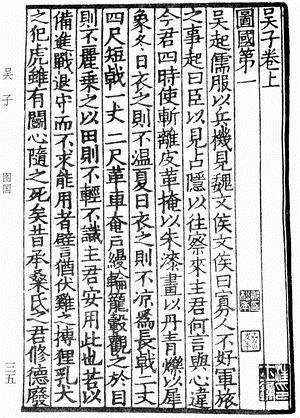 吳子卷上
圖國第一
吳起儒服以兵機見魏文侯文侯曰寡人不好軍旅
之事起曰臣以見占隱以往察來主君何言與心違
今君四時使斬離皮革掩以朱漆畫以丹青爍以犀
象冬日衣之則不溫夏日衣之則不涼爲長戟二丈
四尺短戟一丈二尺革車奄戶縵輪籠轂觀之於目
則不麗乘之以田則不輕不識主君安用此也若以
備進戰退守而不求能用者譬猶伏雞之搏狸乳犬
之犯虎雖有鬭心隨之死矣昔承桑氏之君修德廢
吳子
图国
三五